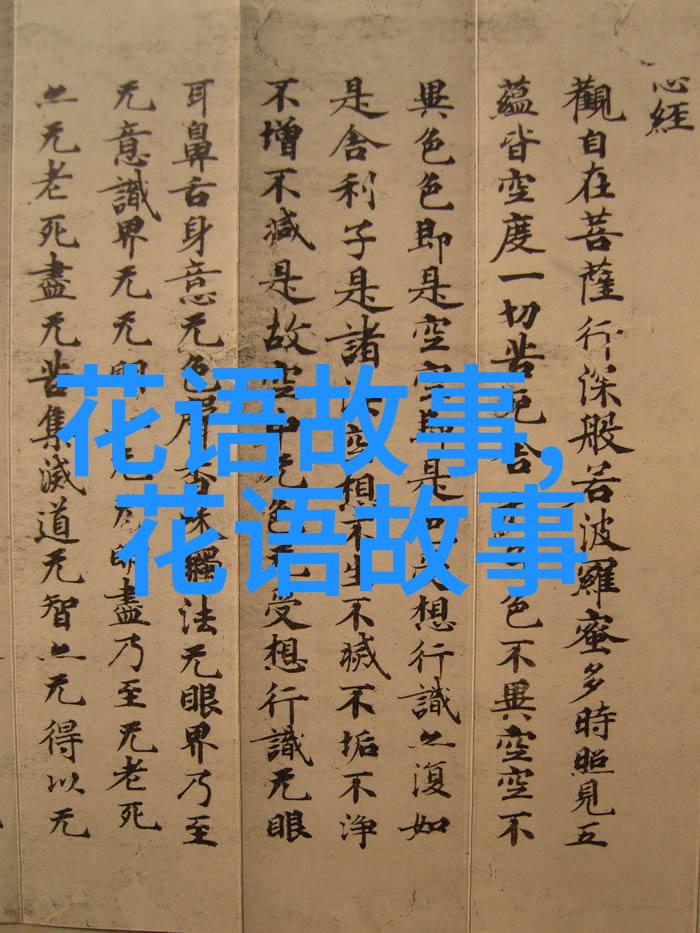 心經
觀自在菩薩行深般若波羅蜜多時照見五
蘊皆空度一切苦厄舍色不異空空不
異色色即是空空即是想行識亦復如
是舍利子是諸空想不生不滅不垢不淨
不增不減是故空中无色无受想行識无眼
耳鼻舌身意无色香味觸法无眼界乃至
无意識界无无明盡乃至无老死
亦无老死盡无苦集滅道无智亦无得以无
花语故事,
花语故事